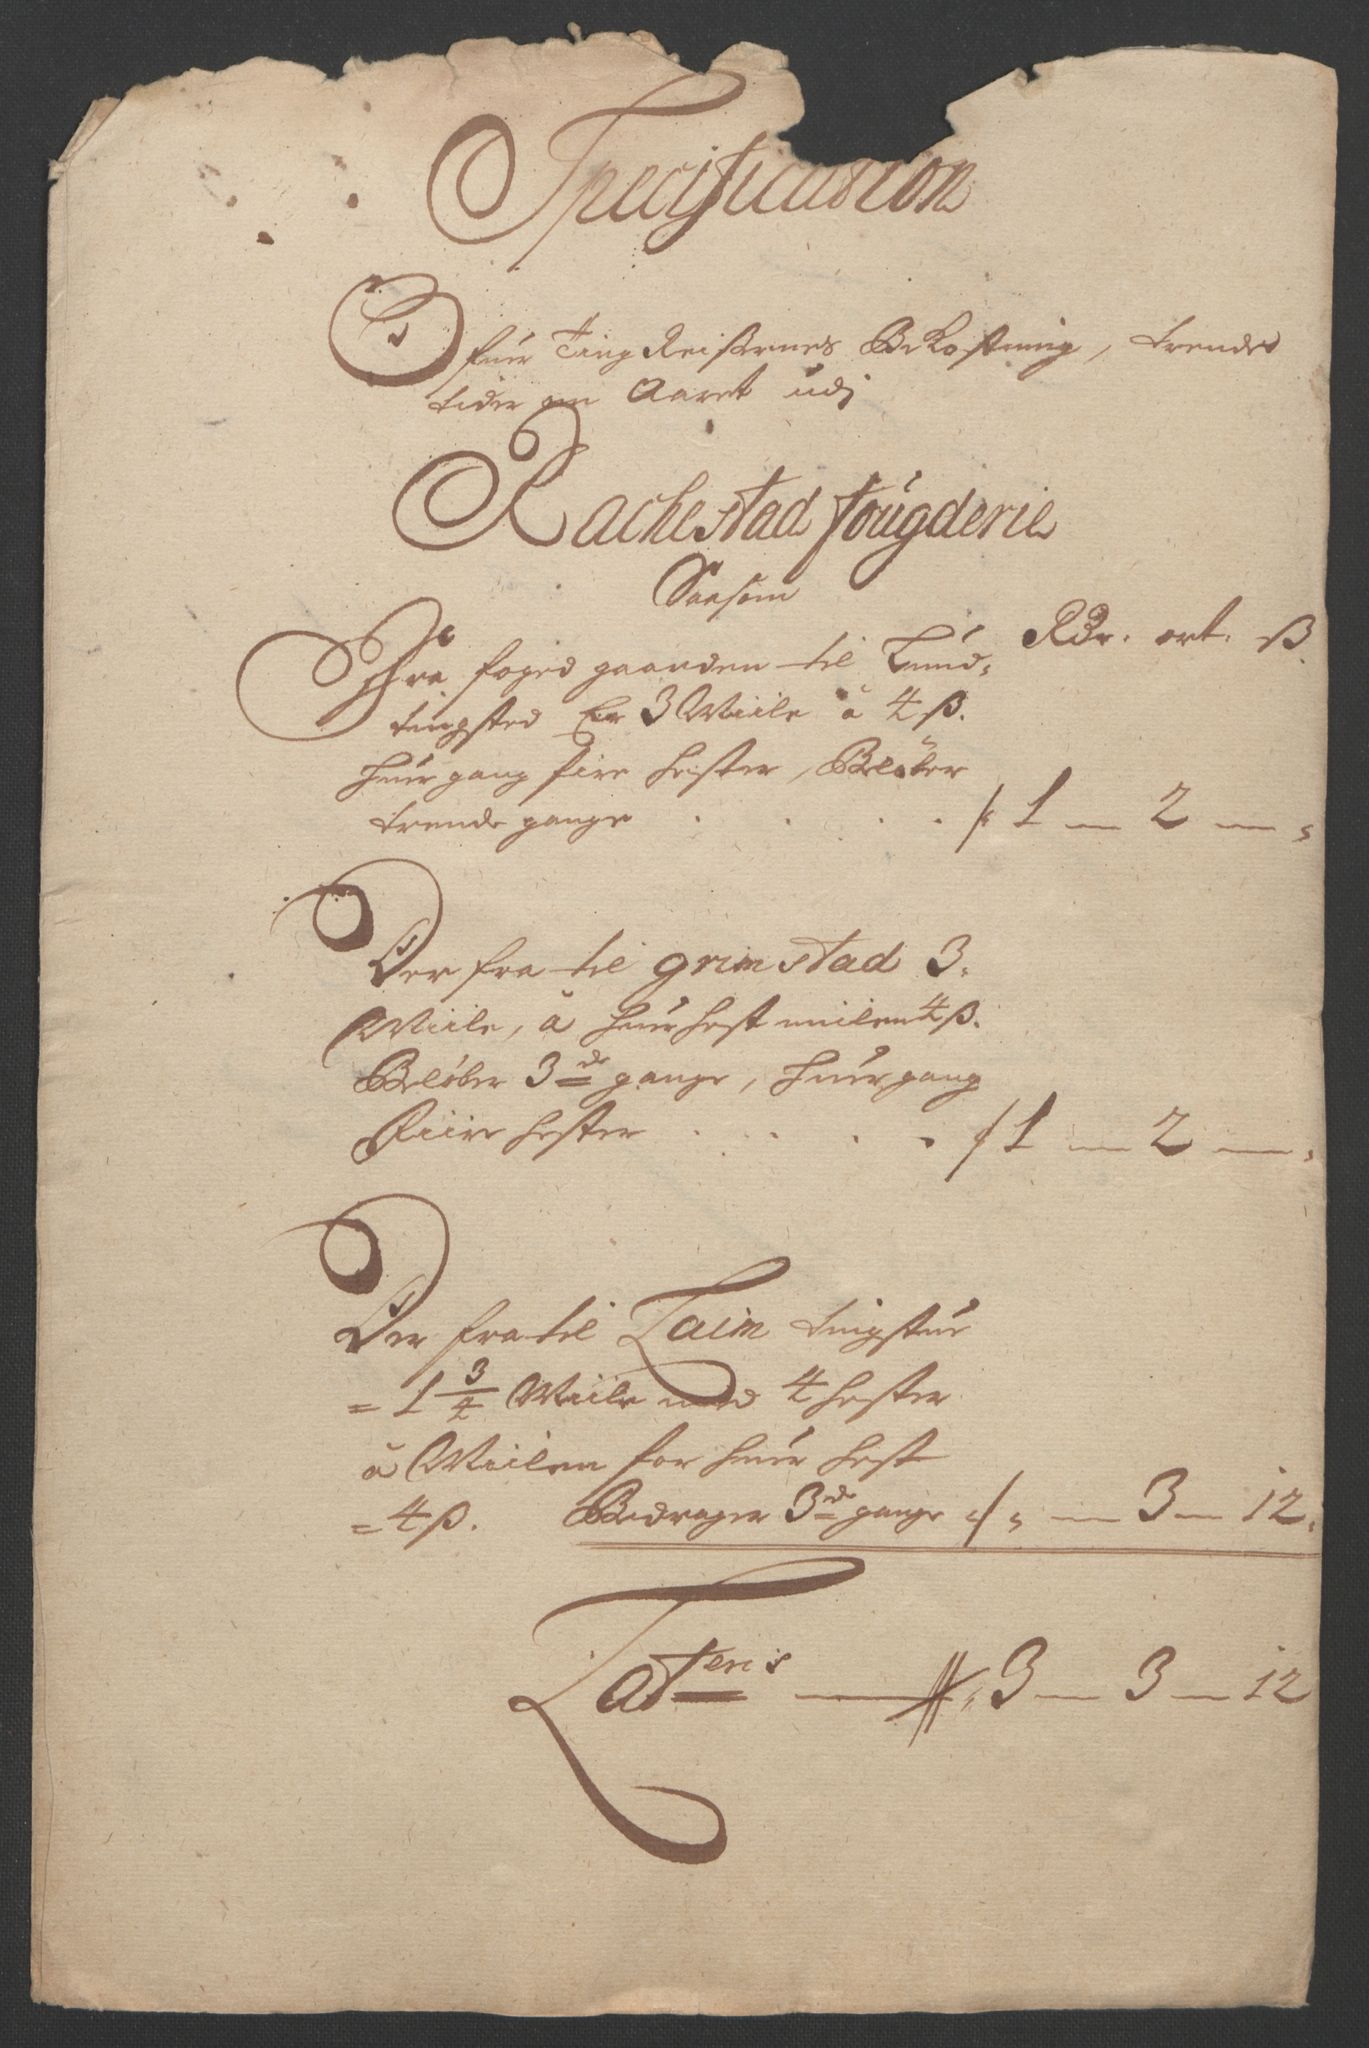 Specification
Ofuer Ting Reisernes Bekostning, trende
tider om Aaret udj
Rachestad fougderie
Saasom
Rdr. ort. ß.
Fra foged gaarden til Lund-
tingsted Er 3 Miile á 4 ß.
huer gang fire Hester, Beløber
trende gange . . . . 1 — 2 —
Der fra til grimstad 3.
Miile, á huer hest miilen 4 ß.
Beløber 3de gange, huer gang
Fiire hester . . . . 1 — 2 —
Der fra til Taim tingstue
= 1 3/4 Miile med 4 hester
á Miilen for huer hest
= 4 ß. Bedrager 3de gange — 3 — 12.
Lateris — 3 — 3 — 12